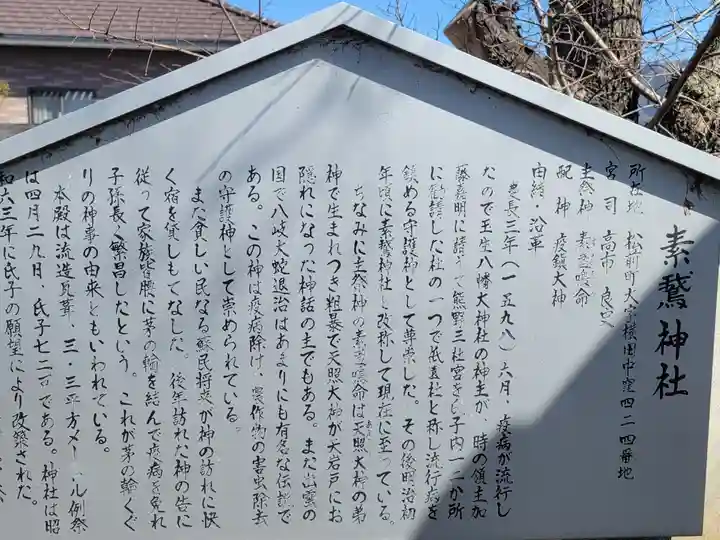 素鵞神社
所在地 松前町大字横田中窪四二四番地
宮司 高市 良定
主祭神 素盞嗚命
配神 疫鎮大神
由緒 沿革
慶長三年(一五九八)六月、疫病が流行し
たので玉生八幡大神社の神主が、時の領主加
藤嘉明に請うて熊野三社宮さい子内一二か所
に勧請した社の一つで祇園社と称し流行病を
鎮める守護神として尊崇した。その後明治初
年頃に素鵞神社と改称して現在に至っている。
ちなみに主祭神の素盞嗚命は天照大神の弟
神で生まれつき粗暴で天照大神が天岩戸にお
隠れになった神話の主でもある。また出雲の
国で八岐大蛇退治はあまりにも有名な伝説で
ある。この神は疫病除け、農作物の害虫除去
の守護神として崇められている。
また貧しい民なる蘇民将来が神の訪れに快
く宿を貸しもてなした。後年訪れた神の告に
従って家族皆腰に茅の輪を結んで疫病を免れ
子孫長く繁昌したという。これが茅の輪くぐ
りの神事の由来ともいわれている。
本殿は流造瓦葺、三・三平方メートル例祭
は四月二九日、氏子七二戸である。神社は昭
和六三年に氏子の願望により改築された。